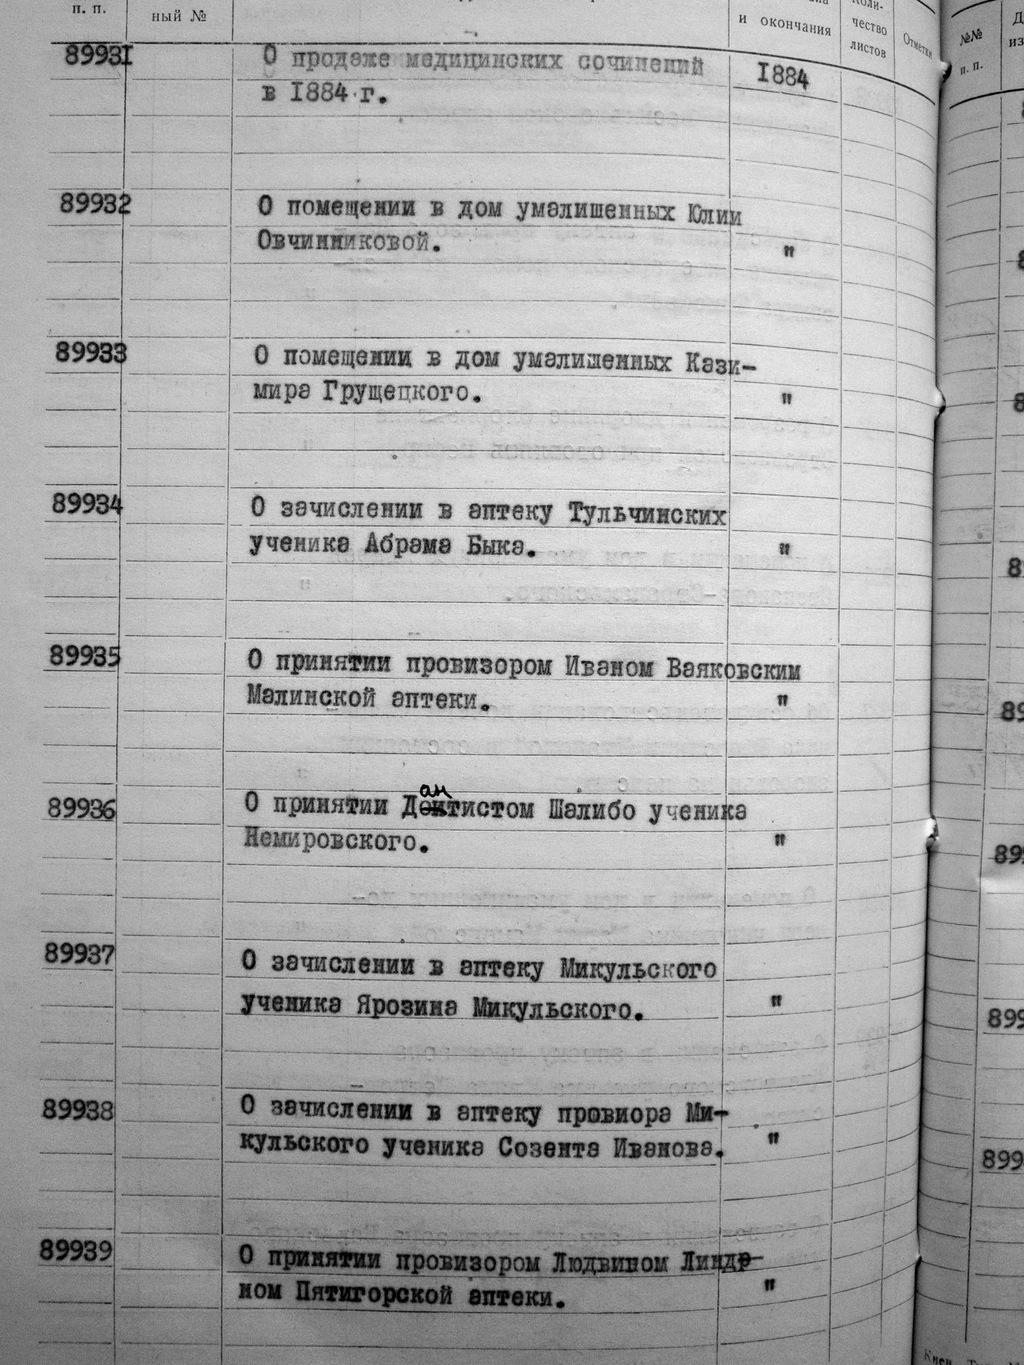 п. п.
ный №
и окончания
чество
листов
Отметки
№№
п. п.
89931 О продаже медицинских сочинений 1884
в 1884 г.
89932 О помещении в дом умалишенных Юлии
Овчинниковой. "
89933 О помещении в дом умалишенных Кази-
мира Грущецкого. "
89934 О зачислении в аптеку Тульчинских
ученика Абрама Быка. "
89935 О принятии провизором Иваном Ваяковским
Малинской аптеки. "
ан
89936 О принятии Доктистом Шалибо ученика
Немировского. "
89937 О зачислении в аптеку Микульского
ученика Ярозина Микульского. "
89938 О зачислении в аптеку провиора Ми-
кульского ученика Созента Иванова. "
89939 О принятии провизором Людвином Линдр-
ном Пятигорской аптеки. "